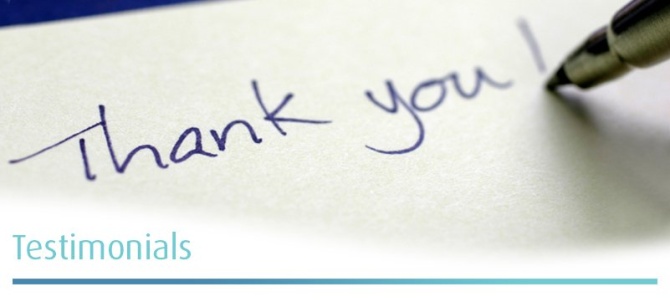 Thank you!
Testimonials